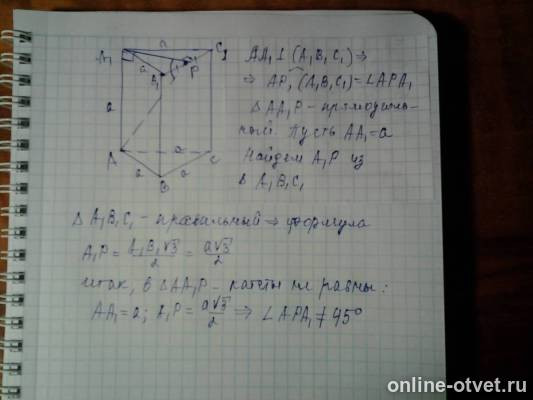 a
A₁ C₁
a P
B₁
a
A a C
a a
B
AA₁ ⊥ (A₁B₁C₁) ⇒
⇒ AP, (A₁B₁C₁) = ∠APA₁
△ AA₁P - прямоуголь-
ный. Пусть AA₁ = a
Найдем A₁P из
△ A₁B₁C₁
△ A₁B₁C₁ - правильный ⇒ формула
A₁P = A₁B₁√3/2 = a√3/2
итак, в △AA₁P - катеты не равны:
AA₁ = a; A₁P = a√3/2 ⇒ ∠APA₁ ≠ 45°
online-otvet.ru